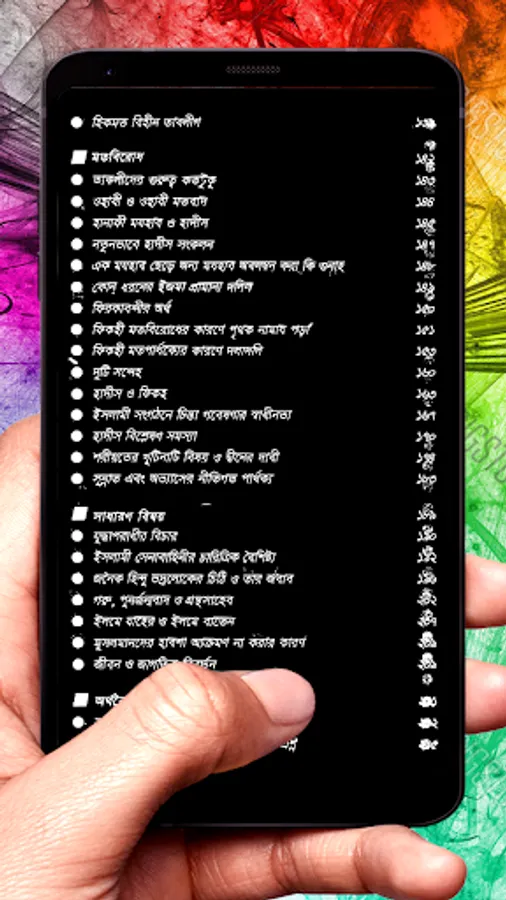 হিকমত বিহীন তাবলীগ
মতবিরোধ ১৪২
তাকলীদের গুরুত্ব কতটুকু ১৪৩
ওহাবী ও ওহাবী মতবাদ ১৪৪
হানাফী মযহাব ও হাদীস ১৪৫
নতুনভাবে হাদীস সংকলন ১৪৭
এক মযহাব ছেড়ে অন্য মযহাব অবলম্বন করা কি গুনাহ ১৪৮
কোন্ ধরনের ইজমা প্রামান্য দলিল ১৪৯
ফিরকাবন্দীর অর্থ ১৫০
ফিকহী মতবিরোধের কারণে পৃথক নামায পড়া ১৫১
ফিকহী মতপার্থক্যের কারণে দলাদলি ১৫৩
দুটি সন্দেহ ১৬০
হাদীস ও ফিকহ ১৬৩
ইসলামী সংগঠনে চিন্তা গবেষণার স্বাধীনতা ১৬৭
হাদীস বিশ্লেষণ সমস্যা ১৭০
শরীয়তের খুটিনাটি বিষয় ও দ্বীনের দাবী ১৭৪
সুন্নাত এবং অভ্যাসের নীতিগত পার্থক্য
সাধারণ বিষয়
যুদ্ধাপরাধীর বিচার
ইসলামী সেনাবাহিনীর চারিত্রিক বৈশিষ্ট্য
জনৈক হিন্দু ভদ্রলোকের চিঠি ও তার জবাব
গরু, পুনর্জন্মবাদ ও গ্রন্থসাহেব
ইলমে যাহের ও ইলমে বাতেন
মুসলমানদের হাবশা আক্রমণ না করার কারণ
জীবন ও জাগতিক